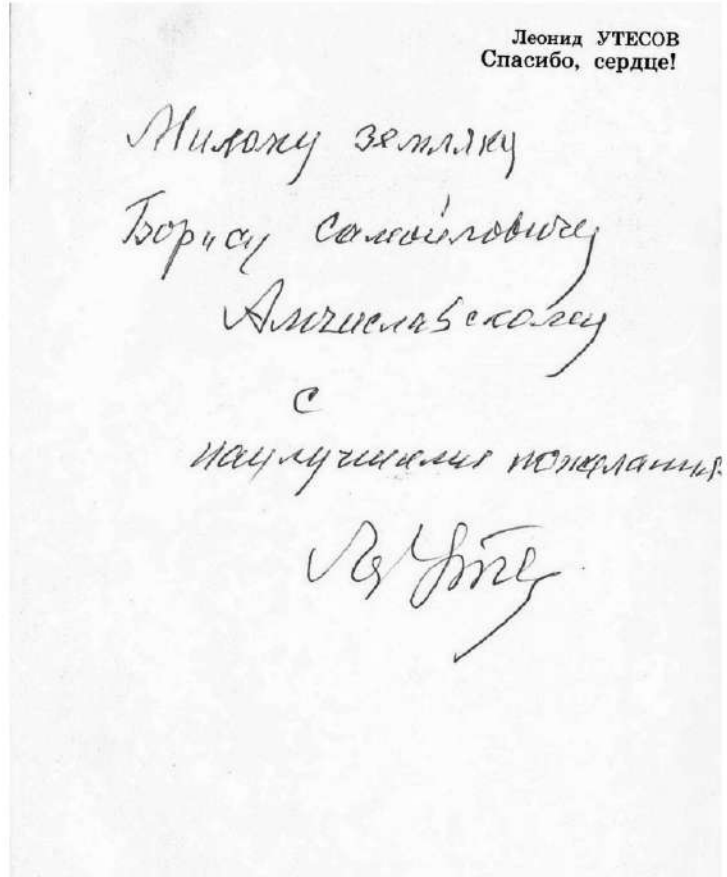 Леонид УТЕСОВ
Спасибо, сердце!
Милому земляку
Борису Самойловичу
Амчиславскому
с
наилучшими пожелания